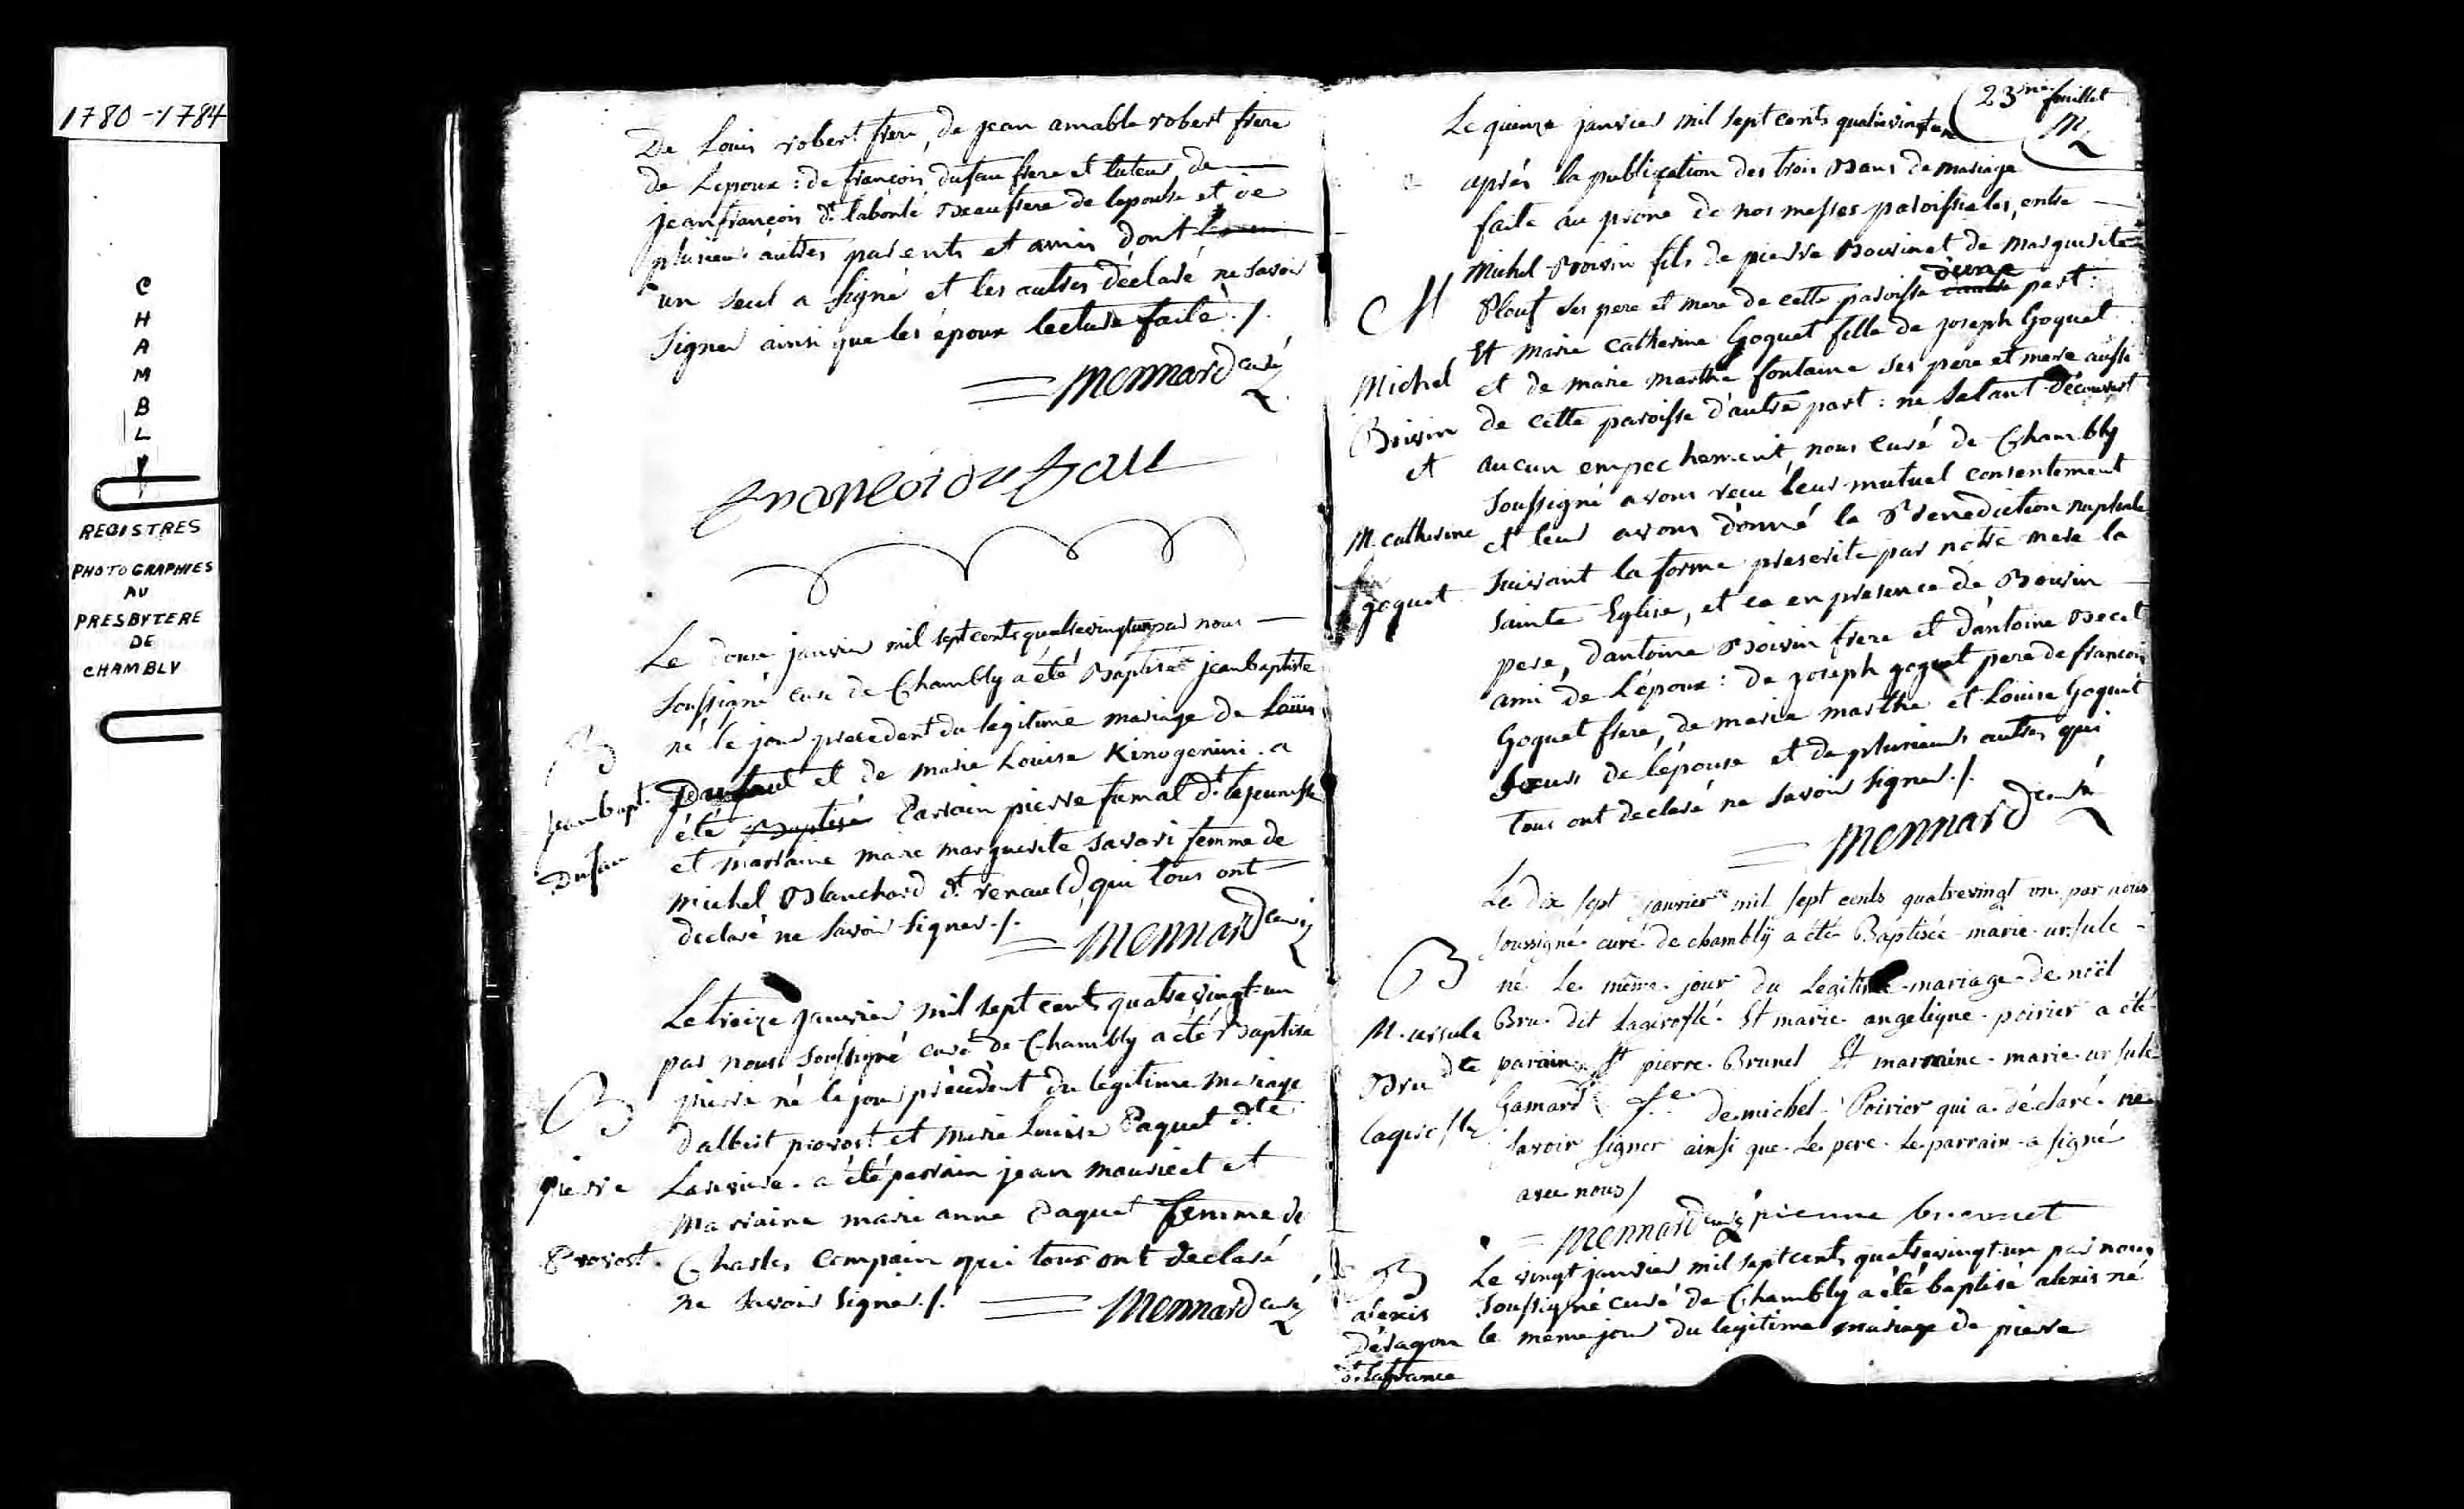 1780-1784
C
H
A
M
B
L
Y
REGISTRES
PHOTOGRAPHIES
AU
PRESBYTERE
DE
CHAMBLY
De Louis robert frere, de jean amable robert frere
de Lepoux : de françois dufau frere et tuteur, de
jean françois dt labonté Beaufrere de lepouse et de
plusieurs autres parents et amis dont
un seul a signé et les autres déclaré ne savoir
signer ainsi que les époux lecture faite ./.
Mennard curé
francoi du fau
Le douze janvier mil sept cents quatrevingt un par nous
soussigné curé de Chambly a été Baptisé jean baptiste
né le jour precedent du legitime mariage de Louis
Dufaut et de marie Louise Kinogenini . a
été Baptisé Parrain pierre fumal dt lajeunesse
et marraine marie marguerite savari femme de
michel Blanchard dt renauld, qui tous ont
declaré ne savoir signer ./.
Mennard curé
B
jean bapt.
Dufau
Le treize janvier mil sept cents quatrevingt un
par nous soussigné curé de Chambly a été Baptisé
pierre né le jour précedent du legitime mariage
d'albert provost et marie Louise Paquet dte
Lariviere . a été parrain jean mauriset et
Marraine marie anne Paquet femme de
Charles Compain qui tous ont declaré
ne savoir signer ./.
Mennard curé
B
pierre
Provost.
23me feuillet
M
Le quinze janvier mil sept cents quatrevingt un
après la publication des trois Bans de mariage
faite au prone de nos messes paroissiales, entre
Michel Boivin fils de pierre Boivin et de marguerite
Plouf ses pere et mere de cette paroisse d'une part :
Et marie Catherine Goguet fille de joseph Goguet
et de marie marthe fontaine ses pere et mere aussi
de cette paroisse d'autre part : ne s'etant découvert
aucun empechement, nous curé de Chambly
soussigné avons reçu leur mutuel consentement
et leur avons donné la Benediction nuptiale
suivant la forme prescrite par notre mere la
sainte Eglise, et ce en presence de Boivin
pere, d'antoine Boivin frere et d'antoine
ami de L'époux : de joseph goguet pere de francois
Goguet frere, de marie marthe et Louise Goguet
soeurs de l'épouse et de plusieurs autres qui
tous ont declaré ne savoir signer ./.
Mennard curé
M
Michel
Boivin
et
M. catherine
goguet
Le dix sept janvier mil sept cents quatrevingt un par nous
soussigné curé de chambly a été Baptisée marie ursule
né le même jour du Légitime mariage de noël
Bru dit Lagiroflé Et marie angelique poirier a été
parain St pierre Brunel Et marraine marie ursule
Gamard fe de michel Poirier qui a déclaré ne
savoir signer ainsi que le pere le parrain a signé
avec nous /
Mennard curé pierre brunet
B
M. ursule
Bru dte
lagirofle
Le vingt janvier mil sept cents quatrevingt un par nous
soussigné curé de Chambly a été baptisé alexis né
le meme jour du legitime mariage de pierre
B
alexis
Deragon
dt lafrance